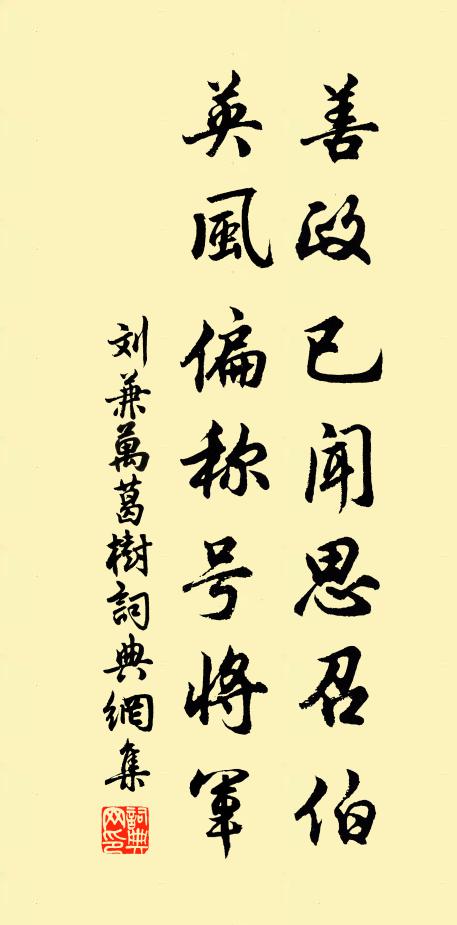 善政已闻思召伯
英風偏称号将軍
刘兼萬葛樹詞典網集
詞典网印